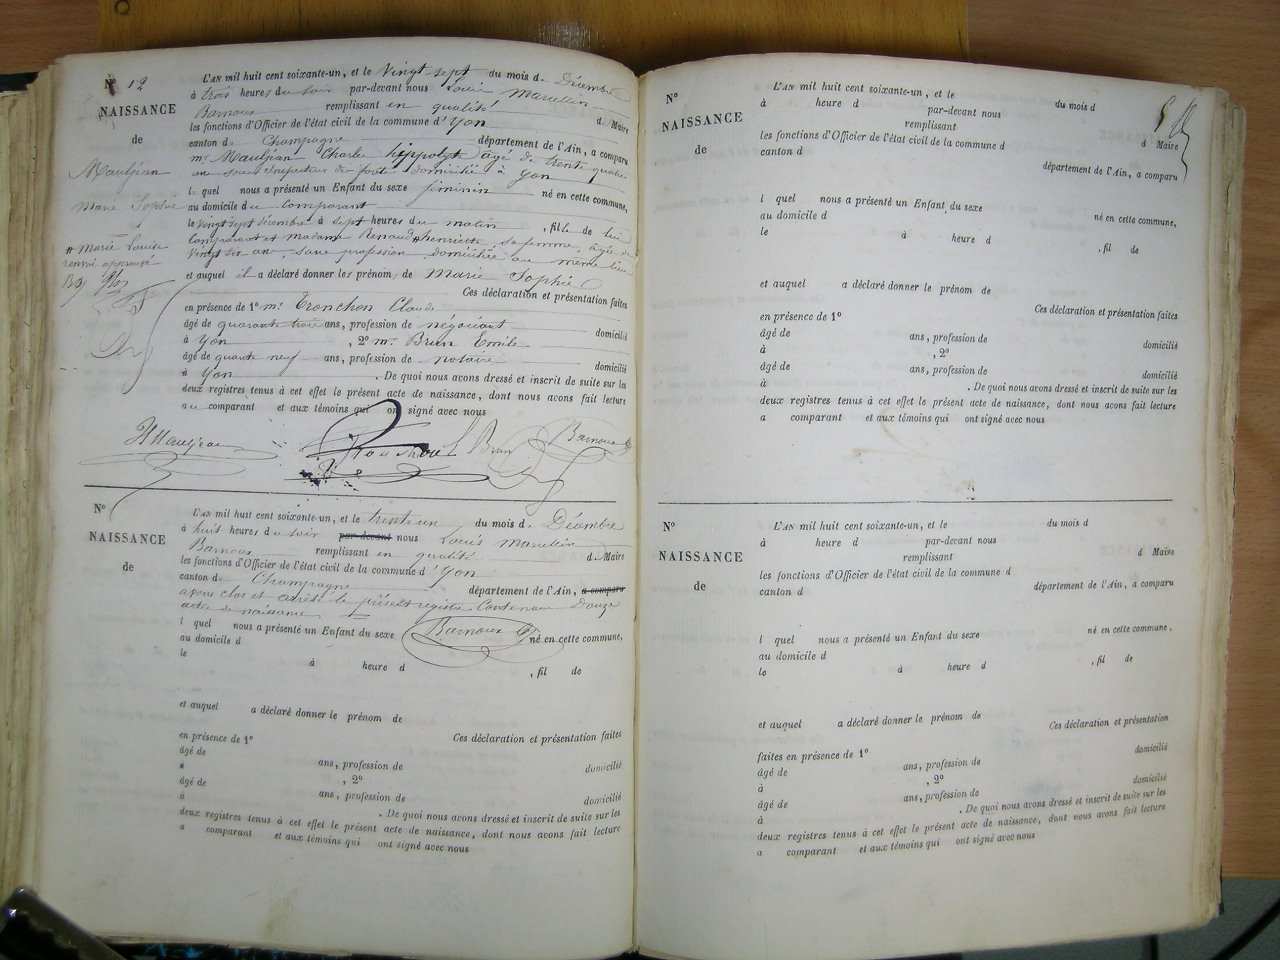 N° 12
NAISSANCE
de
Mauljean
Marie Sophie
# Marie Louise
renvoi approuvé
L'AN mil huit cent soixante-un, et le Vingt-sept du mois d. Décembre
à trois heures du soir par-devant nous Louis Marcellin
Barnoux remplissant en qualité d. Maire
les fonctions d'Officier de l'état civil de la commune d'Yon
canton d. Champagne département de l'Ain, a comparu
mr Mauljean Charle hippolyte âgé de trente quatre
an sous inspecteur de domicilié à Yon
l quel nous a présenté un Enfant du sexe féminin né en cette commune,
au domicile du comparant
le Vingt sept décembre à sept heures du matin , fille de lui
Comparant et madame Renaud # henriette sa femme, âgée de
Vingt six ans, sans profession domiciliée au même lieu
et auquel il a déclaré donner les prénom, de Marie Sophie
Ces déclaration et présentation faites
en présence de 1° mr Tronchon Claude
âgé de quarante trois ans, profession de négociant domicilié
à Yon , 2° mr Brun Emile
âgé de quarante neuf ans, profession de notaire domicilié
à Yon . De quoi nous avons dressé et inscrit de suite sur les
deux registres tenus à cet effet le présent acte de naissance, dont nous avons fait lecture
au comparant et aux témoins qui ont signé avec nous
HMauljean Tronchon E Brun Barnoux
N°
NAISSANCE
de
L'AN mil huit cent soixante-un, et le trente un du mois d. Décembre
à huit heures du soir par-devant nous Louis Marcellin
Barnoux remplissant en qualité d. Maire
les fonctions d'Officier de l'état civil de la commune d'Yon
canton d. Champagne département de l'Ain, a comparu
avons clos et arrêté le présent registre Contenant Douze
actes de naissance
l quel nous a présenté un Enfant du sexe Barnoux né en cette commune,
au domicile d
le à heure d , fil de
et auquel a déclaré donner le prénom de
Ces déclaration et présentation faites
en présence de 1°
âgé de ans, profession de domicilié
à , 2°
âgé de ans, profession de domicilié
à . De quoi nous avons dressé et inscrit de suite sur les
deux registres tenus à cet effet le présent acte de naissance, dont nous avons fait lecture
a comparant et aux témoins qui ont signé avec nous
N°
NAISSANCE
de
L'AN mil huit cent soixante-un, et le du mois d
à heure d par-devant nous
remplissant d Maire
les fonctions d'Officier de l'état civil de la commune d
canton d département de l'Ain, a comparu
l quel nous a présenté un Enfant du sexe né en cette commune,
au domicile d
le à heure d , fil de
et auquel a déclaré donner le prénom de
Ces déclaration et présentation faites
en présence de 1°
âgé de ans, profession de domicilié
à , 2°
âgé de ans, profession de domicilié
à . De quoi nous avons dressé et inscrit de suite sur les
deux registres tenus à cet effet le présent acte de naissance, dont nous avons fait lecture
a comparant et aux témoins qui ont signé avec nous
N°
NAISSANCE
de
L'AN mil huit cent soixante-un, et le du mois d
à heure d par-devant nous
remplissant d Maire
les fonctions d'Officier de l'état civil de la commune d
canton d département de l'Ain, a comparu
l quel nous a présenté un Enfant du sexe né en cette commune.
au domicile d
le à heure d , fil de
et auquel a déclaré donner le prénom de
Ces déclaration et présentation
faites en présence de 1°
âgé de ans, profession de domicilié
à , 2°
âgé de ans, profession de domicilié
à . De quoi nous avons dressé et inscrit de suite sur les
deux registres tenus à cet effet le présent acte de naissance, dont nous avons fait lecture
a comparant et aux témoins qui ont signé avec nous